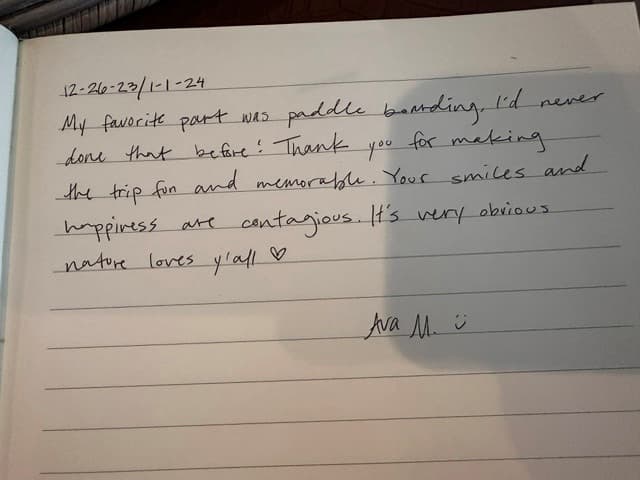 12-26-23/1-1-24
My favorite part was paddle boarding. I'd never
done that before! Thank you for making
the trip fun and memorable. Your smiles and
happiness are contagious. It's very obvious
nature loves y'all ♡
Ava M. ü